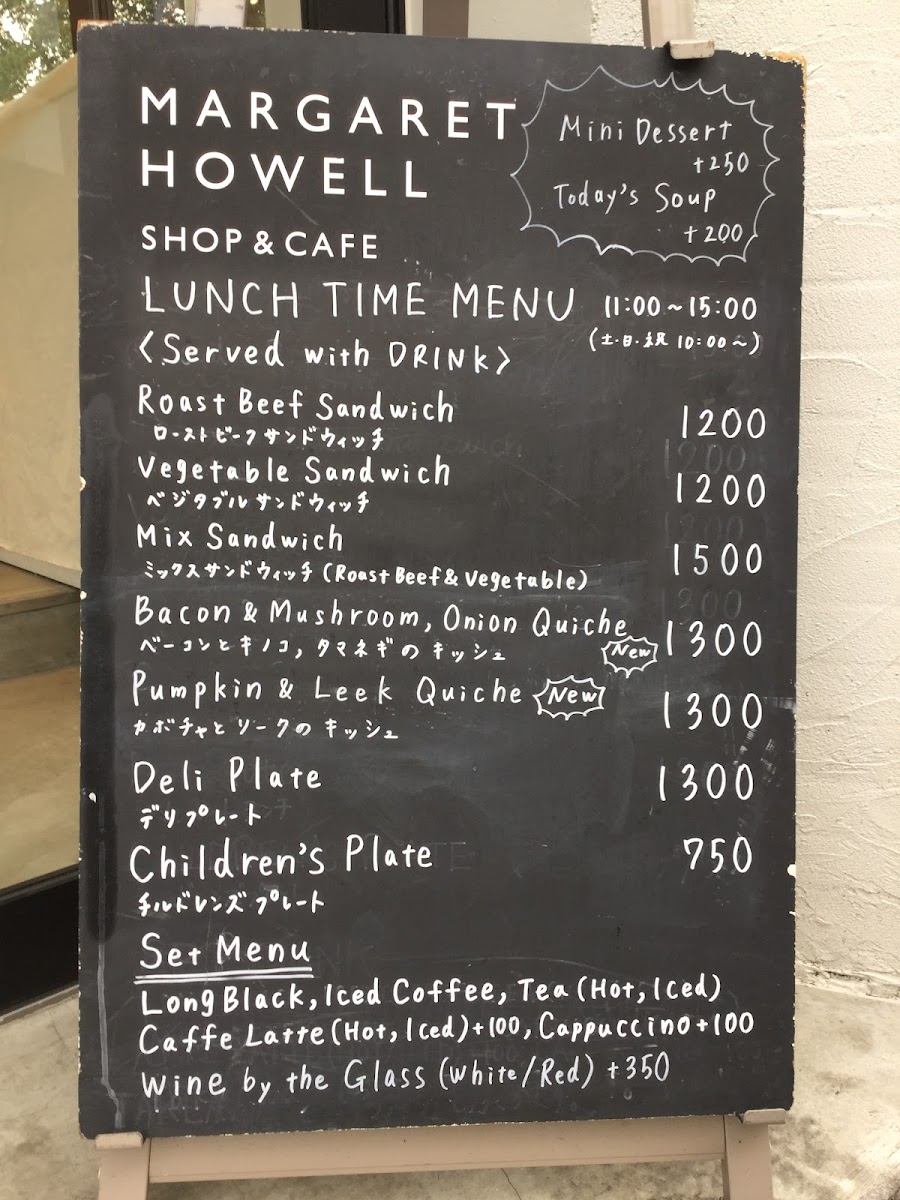 MARGARET
HOWELL
SHOP & CAFE
Mini Dessert
+250
Today's Soup
+200
LUNCH TIME MENU 11:00~15:00
<Served with DRINK> (土・日・祝 10:00~)
Roast Beef Sandwich 1200
ローストビーフサンドウィッチ
Vegetable Sandwich 1200
ベジタブルサンドウィッチ
Mix Sandwich 1500
ミックスサンドウィッチ (Roast Beef & Vegetable)
Bacon & Mushroom, Onion Quiche 1300
ベーコンとキノコ, タマネギのキッシュ New
Pumpkin & Leek Quiche New 1300
カボチャとリークのキッシュ
Deli Plate 1300
デリプレート
Children's Plate 750
チルドレンズプレート
Set Menu
Long Black, Iced Coffee, Tea (Hot, Iced)
Caffe Latte (Hot, Iced) +100, Cappuccino +100
Wine by the Glass (White/Red) +350